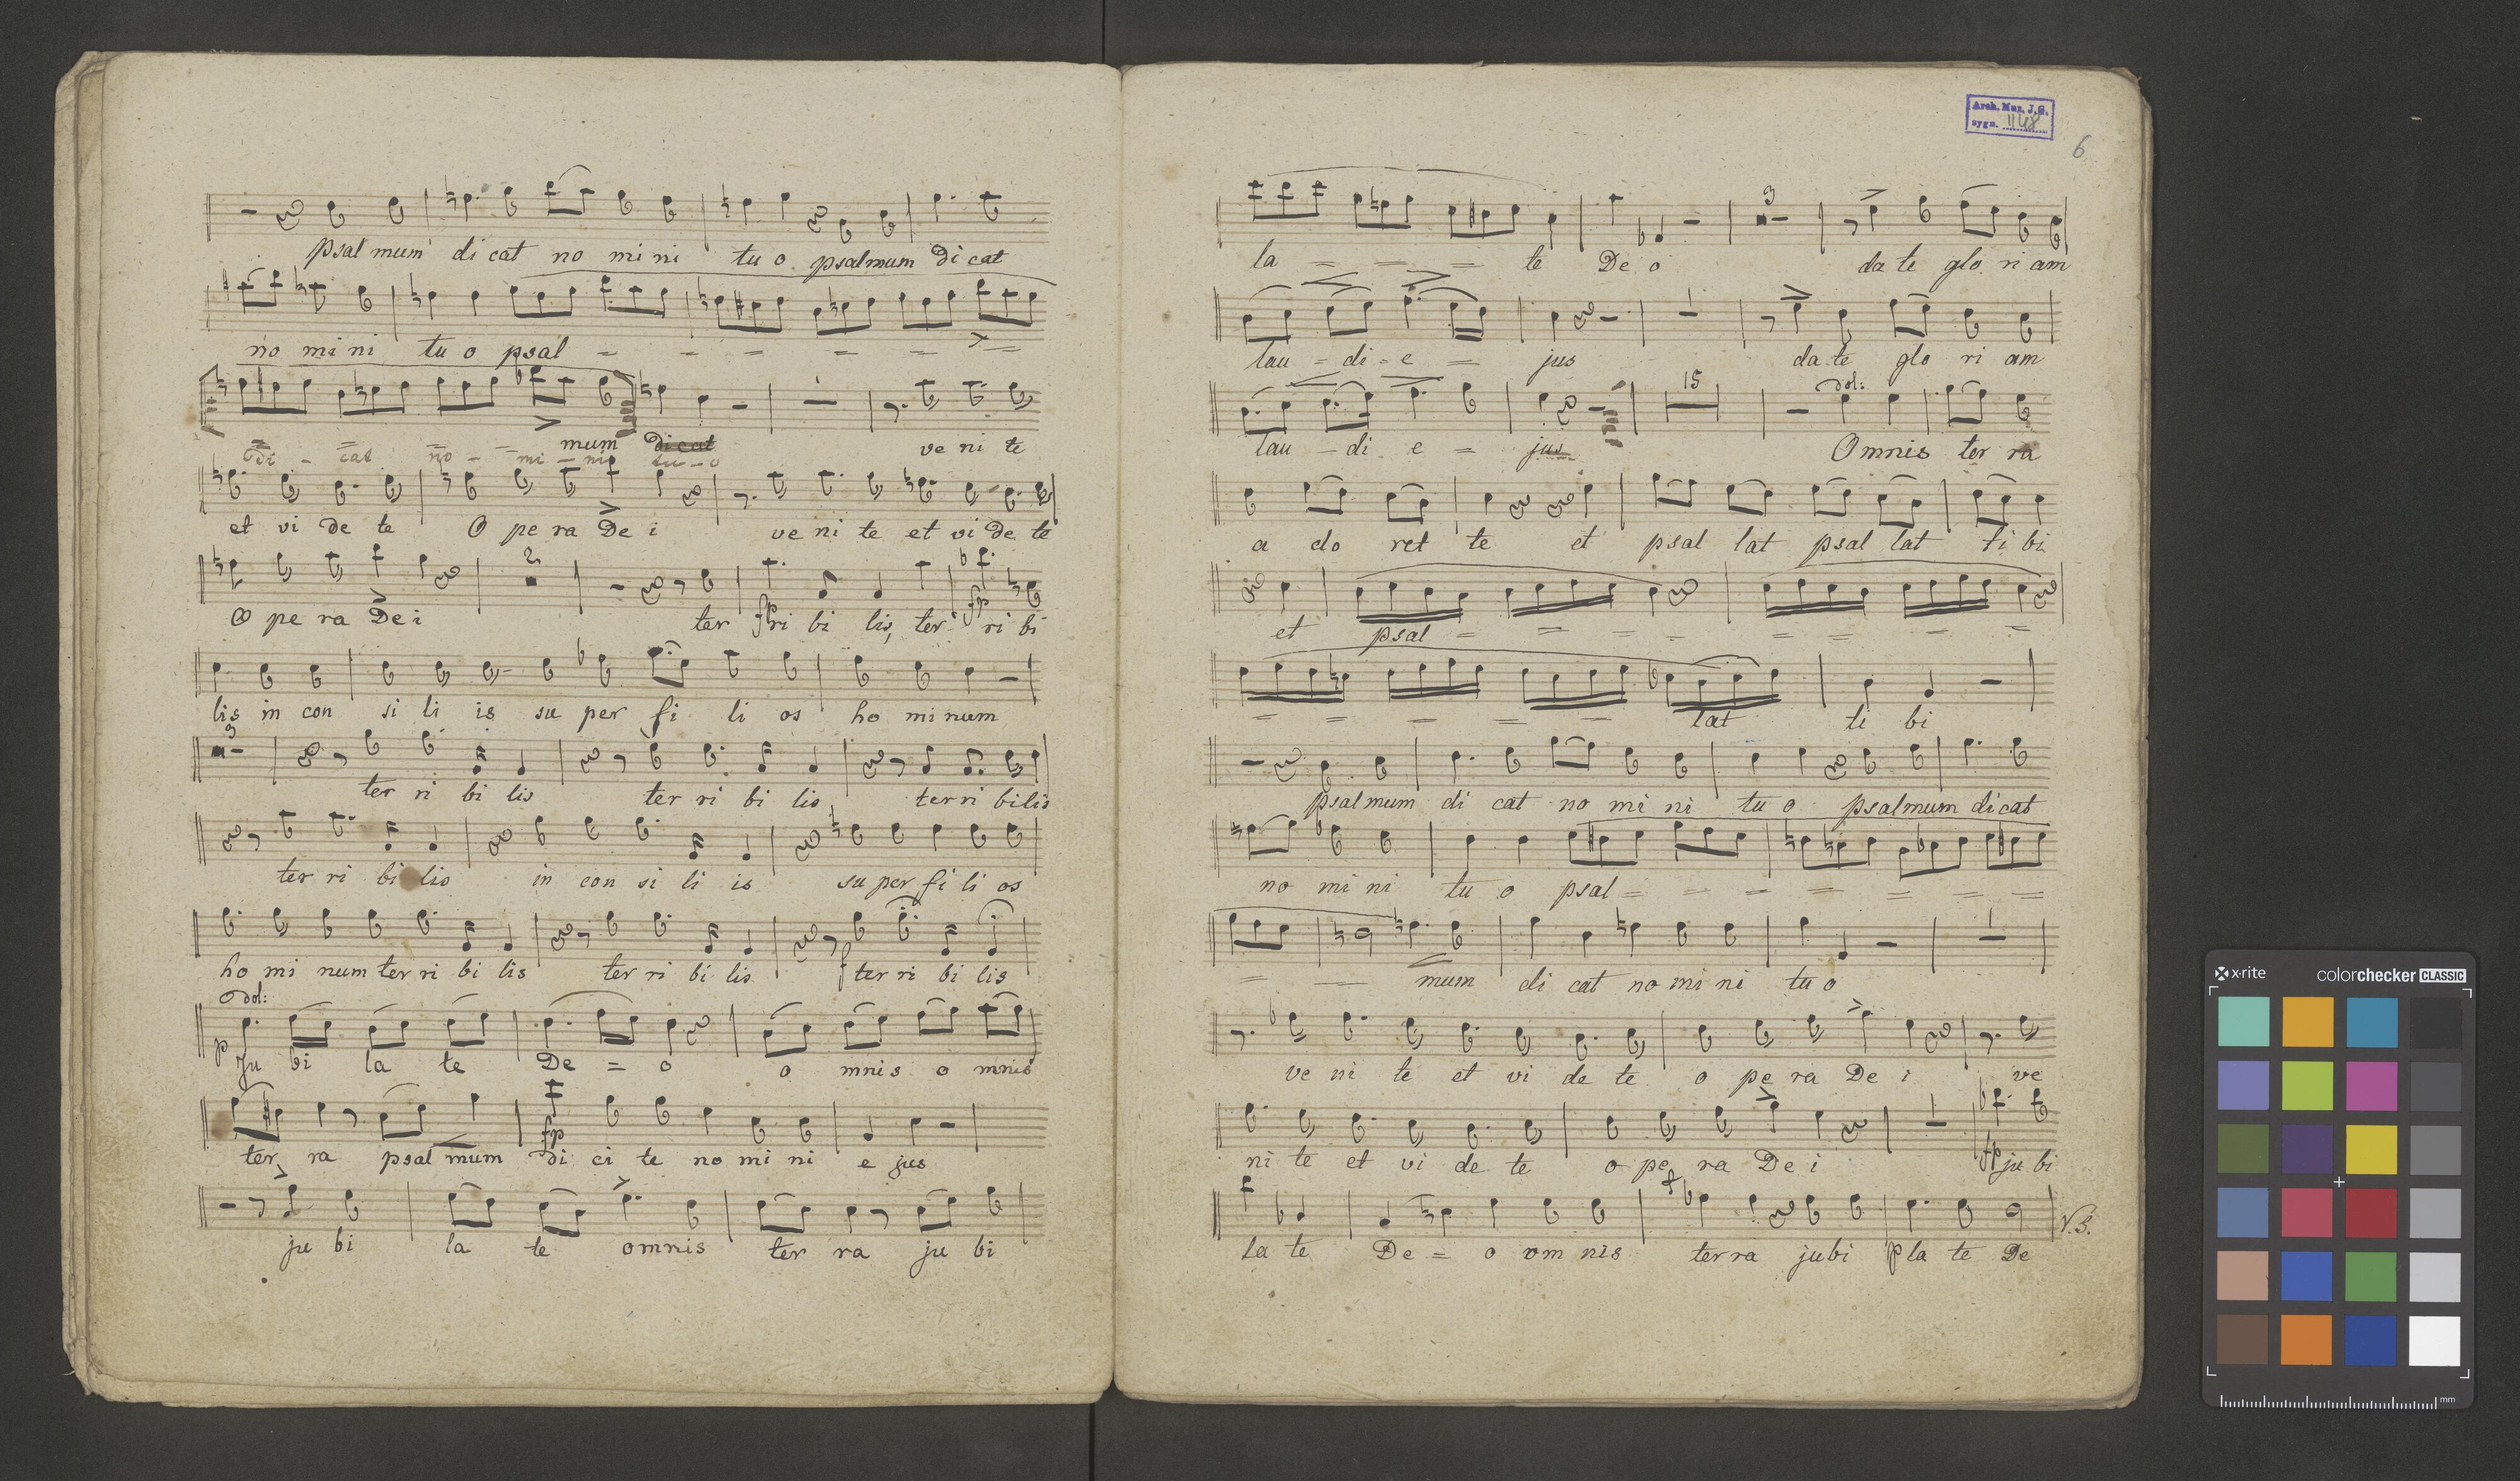 psal mum di cat no mi ni tu o psalmum di cat
no mi ni tu o psal
mum dicat ve ni te
di - cat no - mi - ni tu - o
et vi de te O pe ra De i ve ni te et vi de te
2
O pe ra De i ter fp ri bi lis, ter fp ri bi
lis in con si li is su per fi li os ho mi num
3
ter ri bi lis ter ri bi lis ter ri bi lis
ter ri bi lis in con si li is su per fi li os
ho mi num ter ri bi lis ter ri bi lis f ter ri bi lis
dol:
p Ju bi la te De = o o mnis o mnis
ter ra psal mum fp di ci te no mi ni e jus
ju bi la te omnis ter ra ju bi
Arch. Muz. J.G.
sygn. 1148
6
3
la te De o da te glo ri am
lau - di - e jus da te glo ri am
15 dol:
lau - di e = jus Omnis ter ra
a do ret te et psal lat psal lat ti bi
et psal
lat ti bi
psal mum di cat no mi ni tu o psalmum dicat
no mi ni tu o psal
mum di cat no mi ni tu o
ve ni te et vi de te o pe ra De i ve
ni te et vi de te o pe ra De i fp ju bi
f
la te De = o om nis ter ra ju bi p la te De
V.S.
x-rite colorchecker CLASSIC
mm